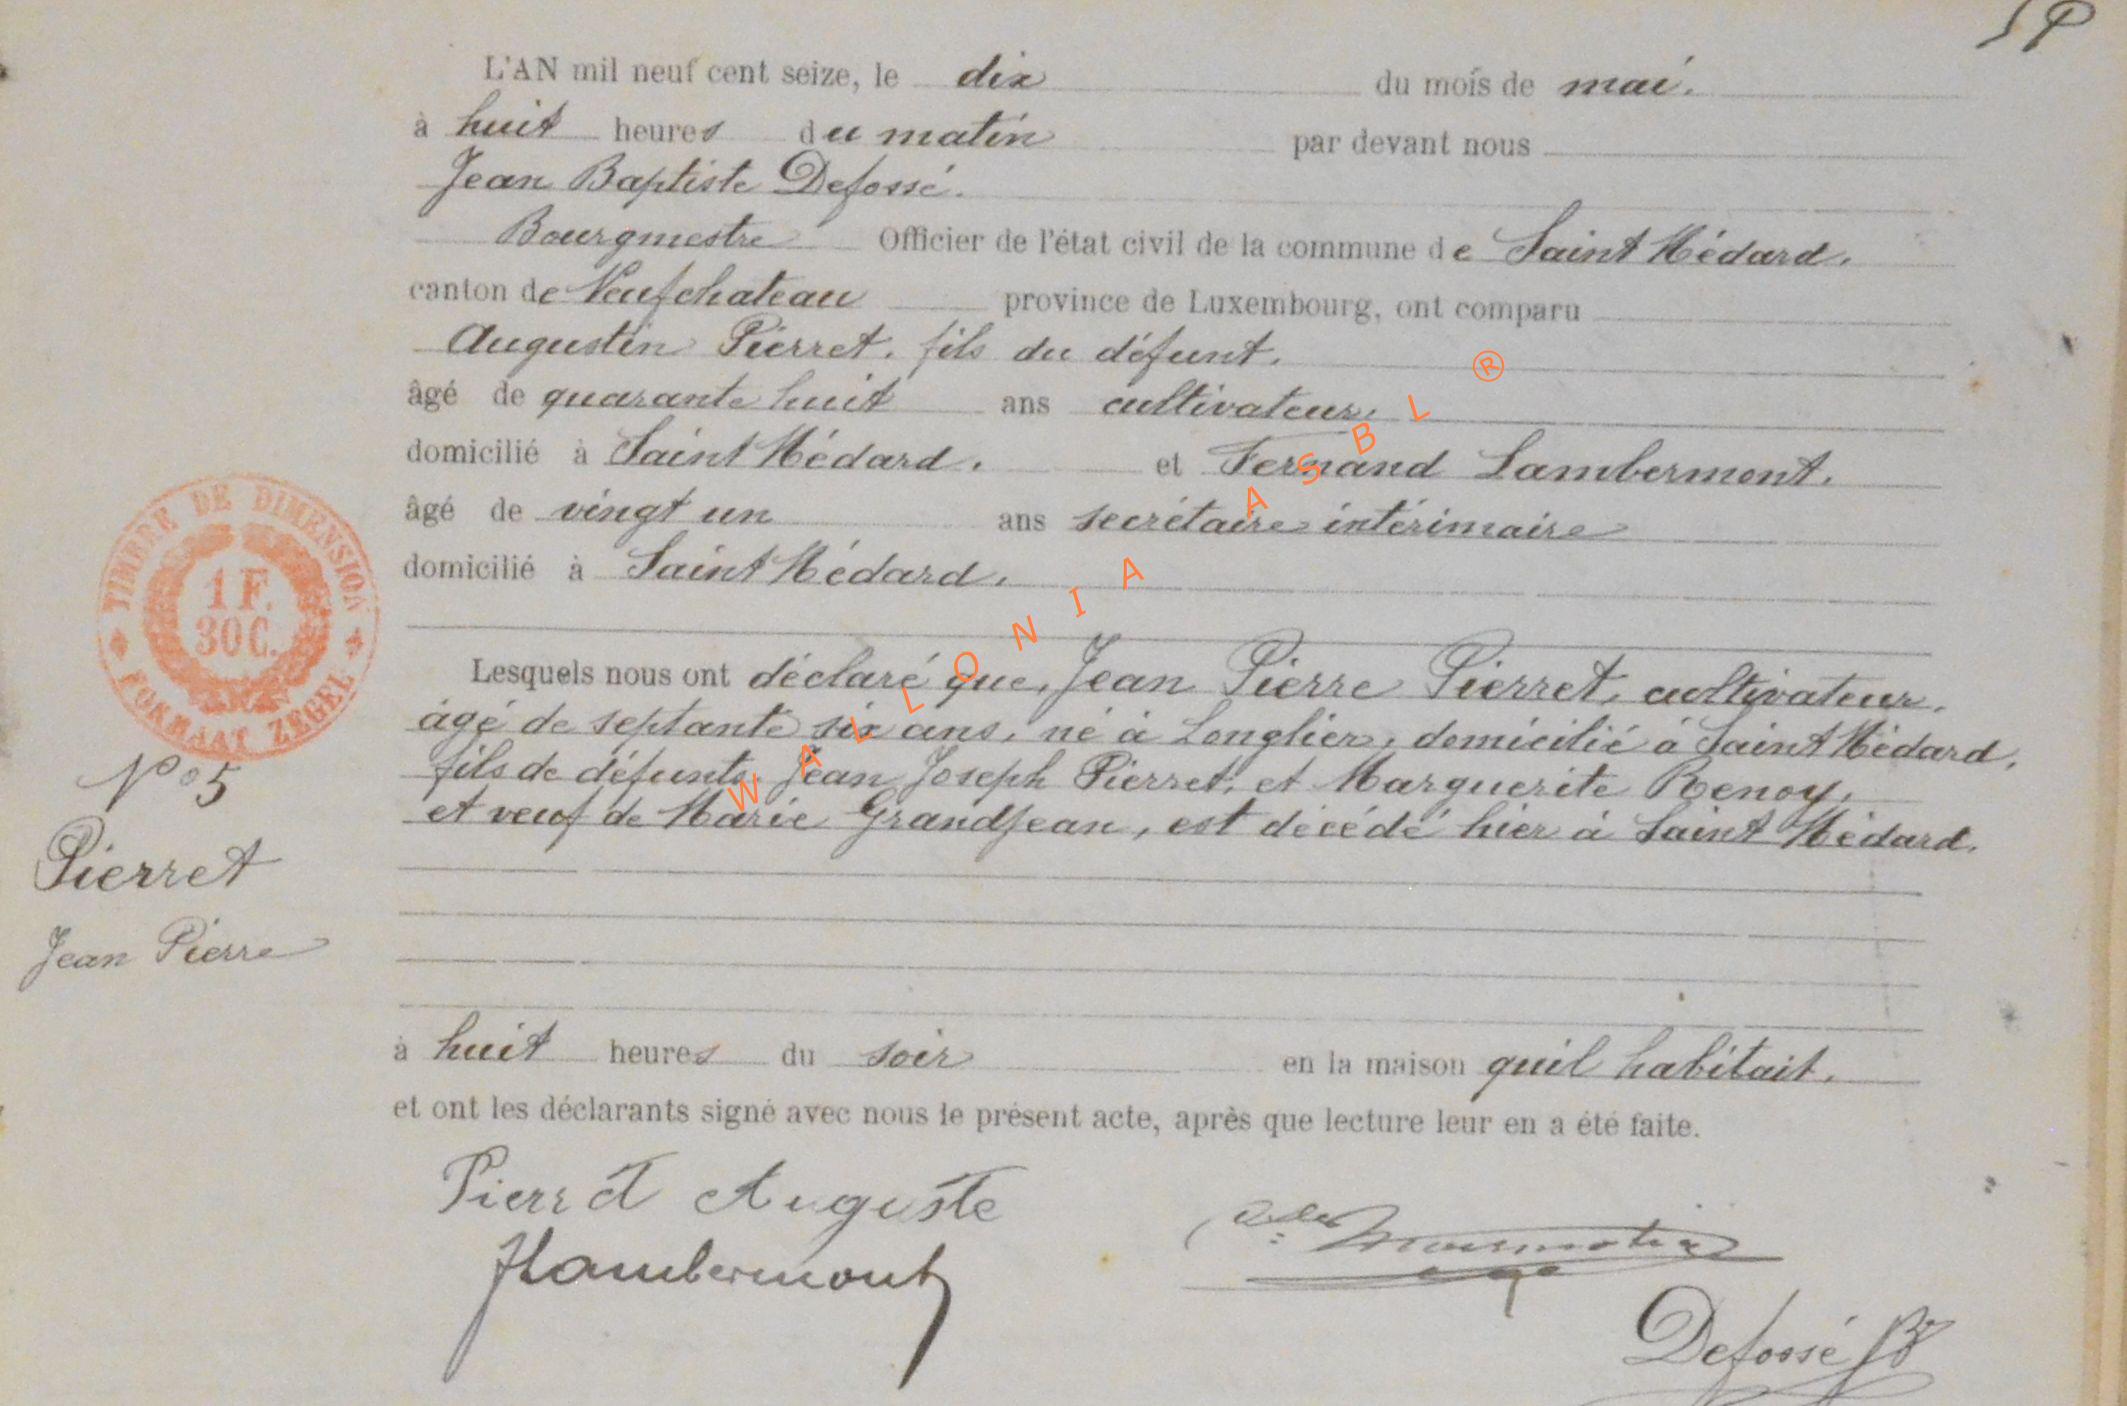 L'AN mil neuf cent seize, le dix du mois de mai.
à huit heures du matin par devant nous
Jean Baptiste Defossé.
Bourgmestre Officier de l'état civil de la commune de Saint Médard.
canton de Neufchateau province de Luxembourg, ont comparu
Augustin Pierret. fils du défunt.
âgé de quarante huit ans cultivateur.
domicilié à Saint Médard. et Fernand Lambermont.
âgé de vingt un ans secrétaire intérimaire
domicilié à Saint Médard.
Lesquels nous ont déclaré que, Jean Pierre Pierret, cultivateur,
âgé de septante six ans, né à Longlier, domicilié à Saint Médard,
fils de défunts, Jean Joseph Pierret, et Marguerite Renoy,
et veuf de Marie Grandjean, est décédé hier à Saint Médard.
à huit heures du soir en la maison quil habitait.
et ont les déclarants signé avec nous le présent acte, après que lecture leur en a été faite.
Pierret Auguste
FLambermont
Defossé JB
TIMBRE DE DIMENSION
1 F.
30 C.
FORMAAT ZEGEL
N° 5
Pierret
Jean Pierre
WALLONIA ASBL ®